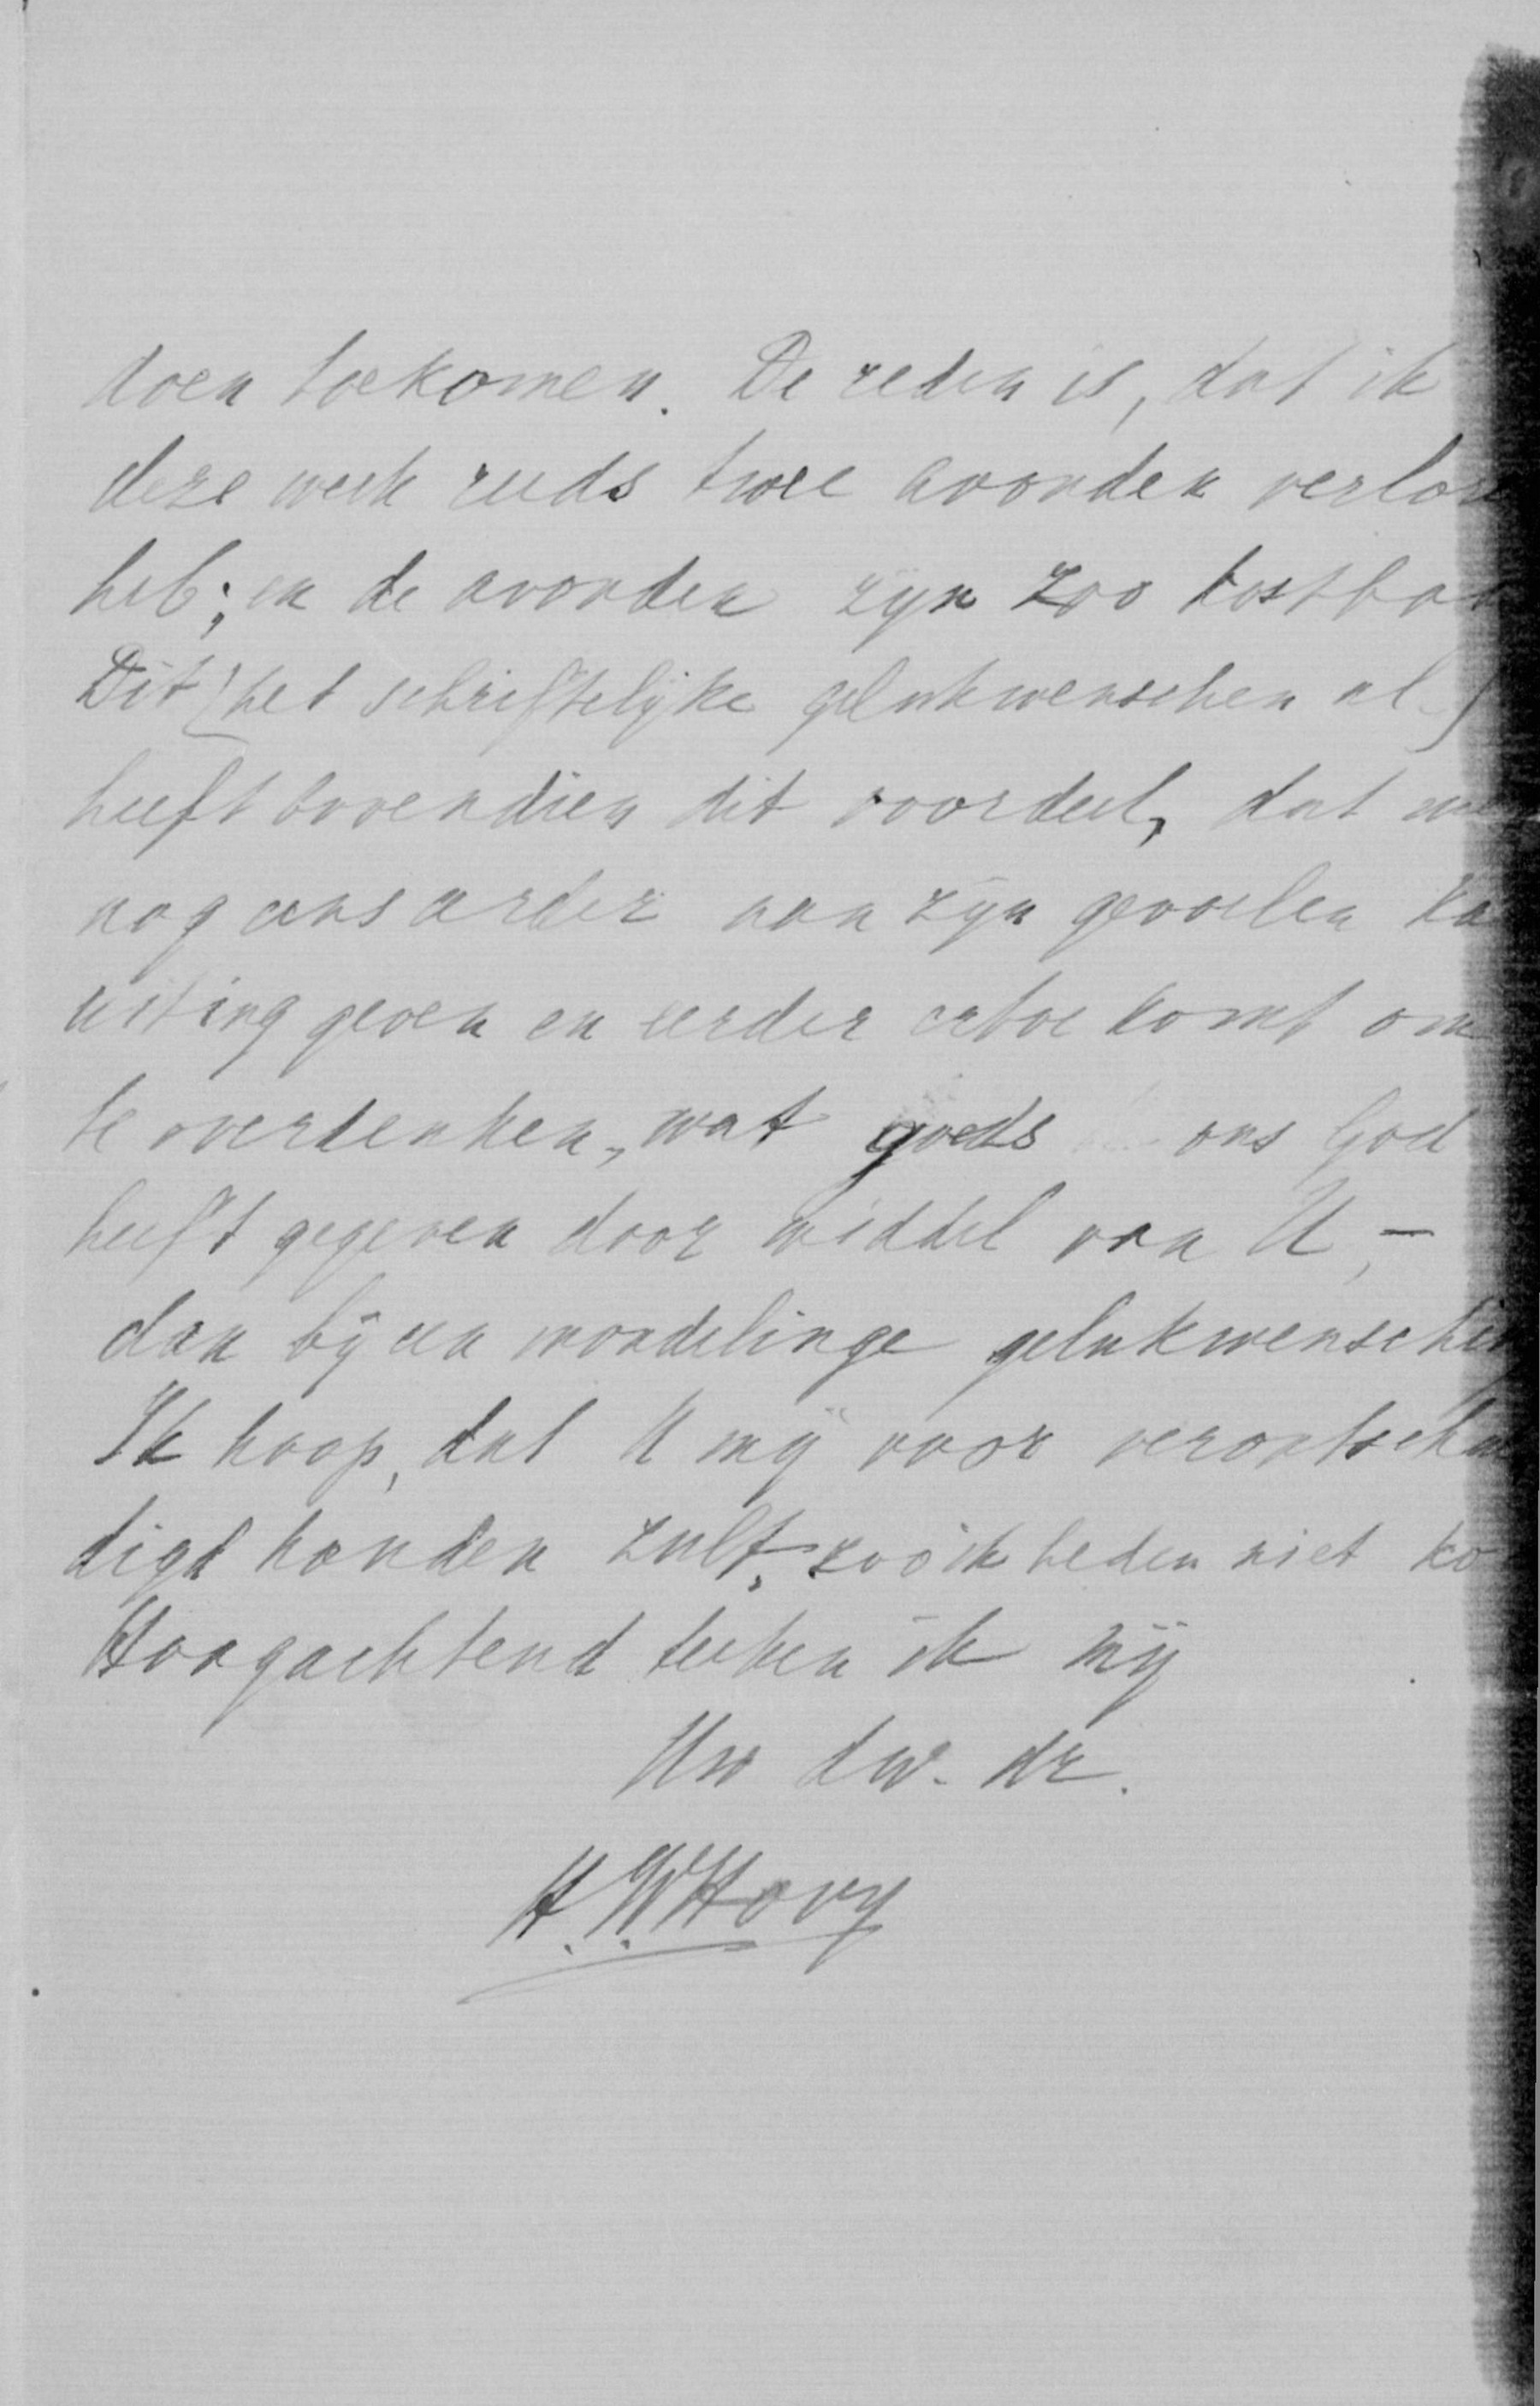 doen toekomen. De reden is, dat ik
deze week reeds twee avonden verlore
heb; en de avonden zijn zoo kostba
Dit (het schriftelijke gelukwenschen nl.)
heeft bovendien dit voordeel, dat me
nog eens aan zijn gevoelen ka
uiting geven en eerder ertoe komt om
te overdenken, wat goeds ons God
heeft gegeven door middel van U, –
dan bij een mondelinge gelukwensching
Ik hoop, dat U mij voor verontschul
digd houden zult, zoo ik heden niet ko
Hoogachtend teeken ik mij
Uw dw. dr.
H. W. Hovy